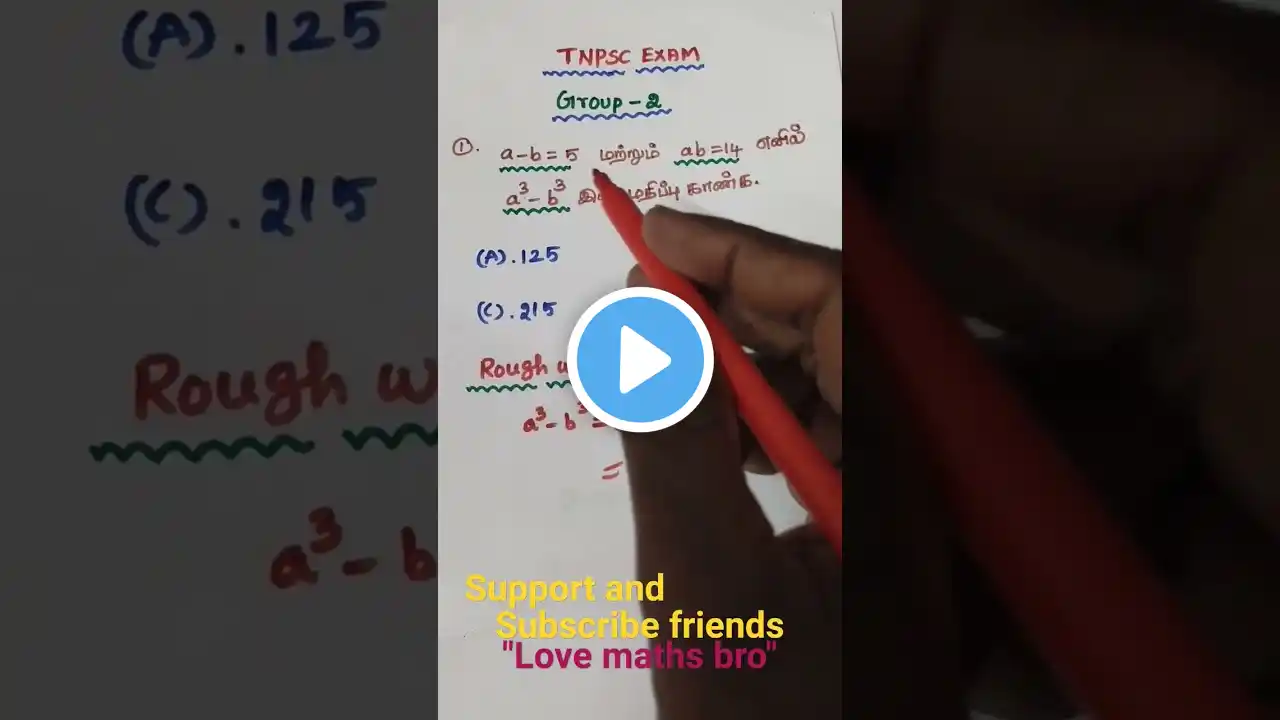 TNPSC EXAM
Group - 2
①. a-b = 5 மற்றும் ab = 14 எனில்
a³- b³ மதிப்பு காண்க.
(A). 125
(C). 215
Rough
a³- b³ =
=
Support and
Subscribe friends
"Love maths bro"